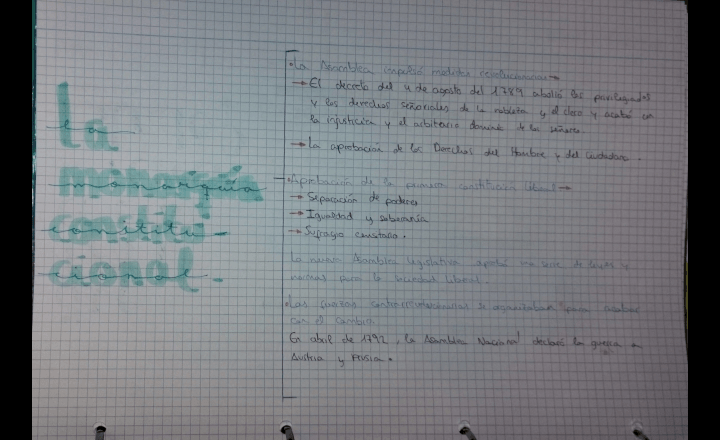 La
monarquía
constitu-
cional.
•La Asamblea impulsó medidas revolucionarias →
→ El decreto del 4 de agosto del 1789 abolió los privilegiados
y los derechos señoriales de la nobleza y el clero y acabó con
la injusticia y el arbitrario dominio de los señores.
→ La aprobación de los Derechos del Hombre y del Ciudadano.
Aprobación de la primera constitución liberal →
→ Separación de poderes
→ Igualdad y soberanía
→ Sufragio censitario.
La nueva Asamblea legislativa aprobó una serie de
para la sociedad liberal.
•Las fuerzas contrarrevolucionarias se organizaban para acabar
con el cambio.
En abril de 1792, la Asamblea Nacional declaró la guerra a
Austria y Prusia.